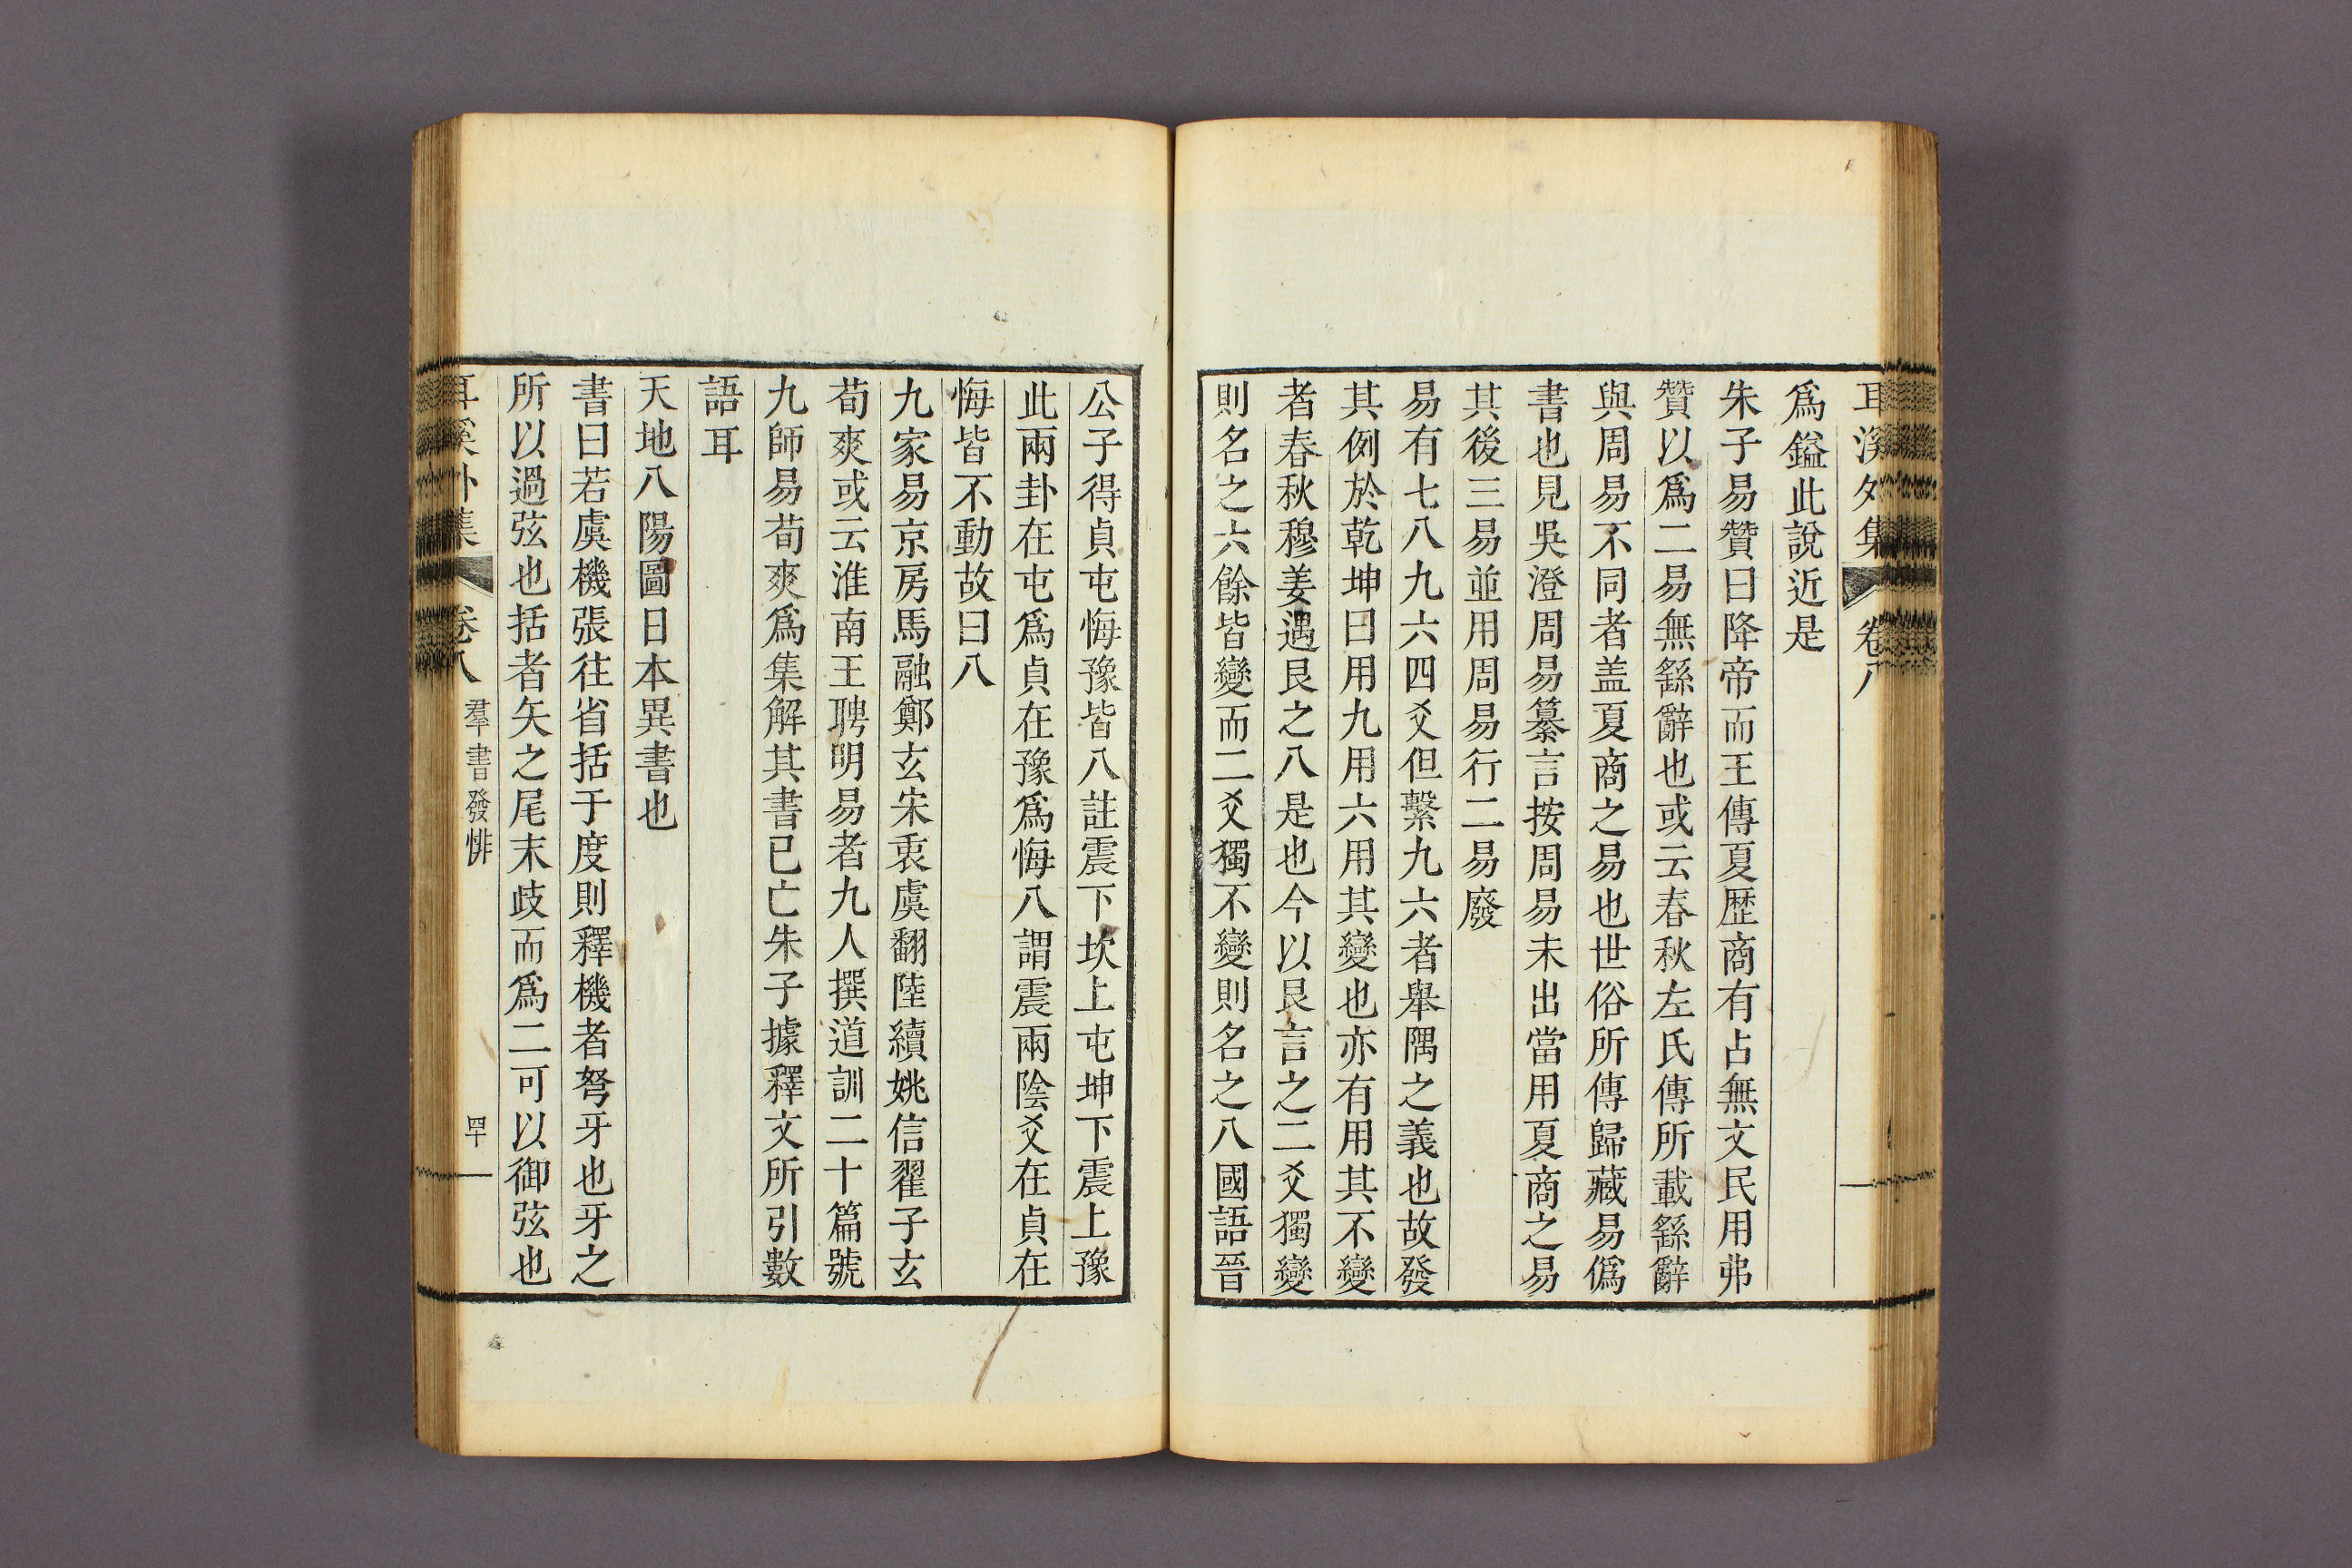 耳溪外集 卷八
爲鎰此說近是
朱子易贊曰降帝而王傳夏歷商有占無文民用弗
贊以爲二易無繇辭也或云春秋左氏傳所載繇辭
與周易不同者盖夏商之易也世俗所傳歸藏易僞
書也見吳澄周易纂言按周易未出當用夏商之易
其後三易並用周易行二易廢
易有七八九六四爻但繫九六者舉隅之義也故發
其例於乾坤曰用九用六用其變也亦有用其不變
者春秋穆姜遇艮之八是也今以艮言之二爻獨變
則名之六餘皆變而二爻獨不變則名之八國語晉
公子得貞屯悔豫皆八註震下坎上屯坤下震上豫
此兩卦在屯爲貞在豫爲悔八謂震兩陰爻在貞在
悔皆不動故曰八
九家易京房馬融鄭玄宋衷虞翻陸續姚信翟子玄
荀爽或云淮南王聘明易者九人撰道訓二十篇號
九師易荀爽爲集解其書已亡朱子據釋文所引數
語耳
天地八陽圖日本異書也
書曰若虞機張往省括于度則釋機者弩牙也牙之
所以過弦也括者矢之尾末歧而爲二可以御弦也
耳溪外集 卷八 羣書發悱 四十